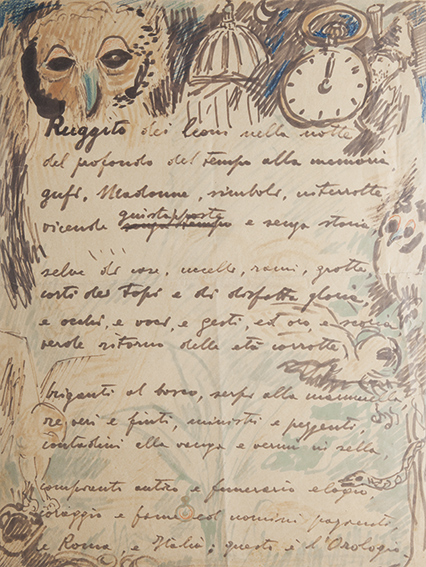 Ruggito dei leoni nella notte
dal profondo del tempo alla memoria
gufi, Madonne, simboli, interrotte
vicende giustapposte e senza storia,
selve di case, uccelli, rami, grotte,
corti dei topi e di disfatta gloria,
e occhi, e voci, e gesti, ed oro, e scoria
verde ritorno delle età corrotte,
briganti al bosco, serpi alla mammella
re veri e finti, ministri e pezzenti,
contadini alla vanga e vermi in sella,
compianto antico e funerario elogio,
coraggio e fame ed uomini
e Roma, e Italia: questo è l'Orologio.